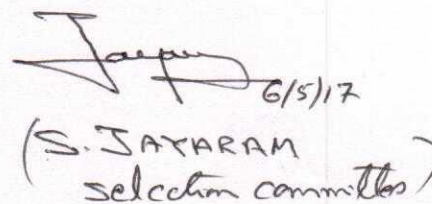 6/5/17
(S. JAYARAM
selection committee)